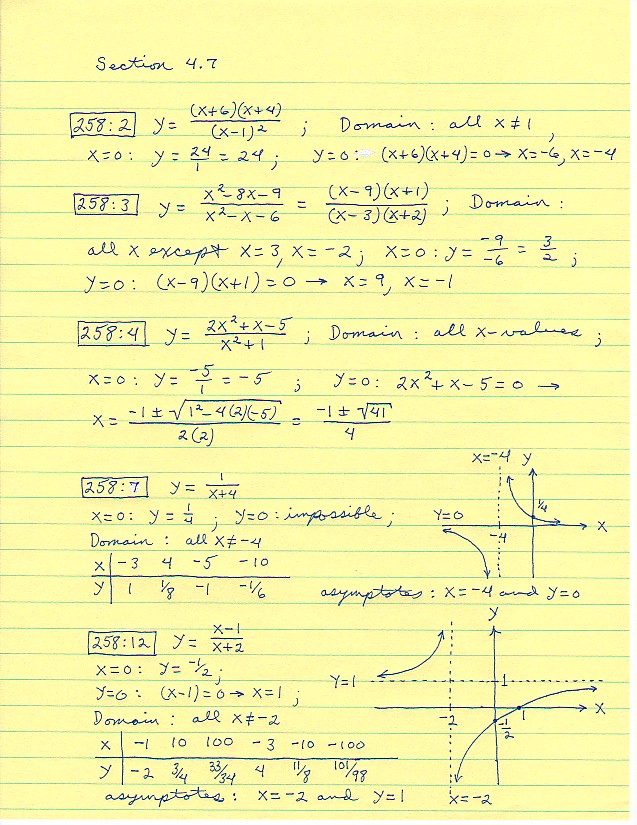 Section 4.7
258:2 y = (x+6)(x+4)/(x-1)² ; Domain: all x ≠ 1,
x=0: y = 24/1 = 24; y=0: (x+6)(x+4)=0 → x=-6, x=-4
258:3 y = x²-8x-9/x²-x-6 = (x-9)(x+1)/(x-3)(x+2) ; Domain:
all x except x=3, x=-2; x=0: y = -9/-6 = 3/2 ;
y=0: (x-9)(x+1)=0 → x=9, x=-1
258:4 y = 2x²+x-5/x²+1 ; Domain: all x-values ;
x=0: y = -5/1 = -5 ; y=0: 2x²+x-5=0 →
x = -1 ± √1²-4(2)(-5)/2(2) = -1 ± √41/4
258:7 y = 1/x+4
x=0: y = 1/4 ; y=0: impossible;
Domain: all x ≠ -4
x | -3 4 -5 -10
y | 1 1/8 -1 -1/6
x=-4 y
1/4
y=0 x
-4
asymptotes: x=-4 and y=0
258:12 y = x-1/x+2
x=0: y = -1/2 ;
y=0: (x-1)=0 → x=1 ;
Domain: all x ≠ -2
x | -1 10 100 -3 -10 -100
y | -2 3/4 33/34 4 11/8 101/98
asymptotes: x=-2 and y=1
y
y=1 1
-2 1 x
-1/2
x=-2